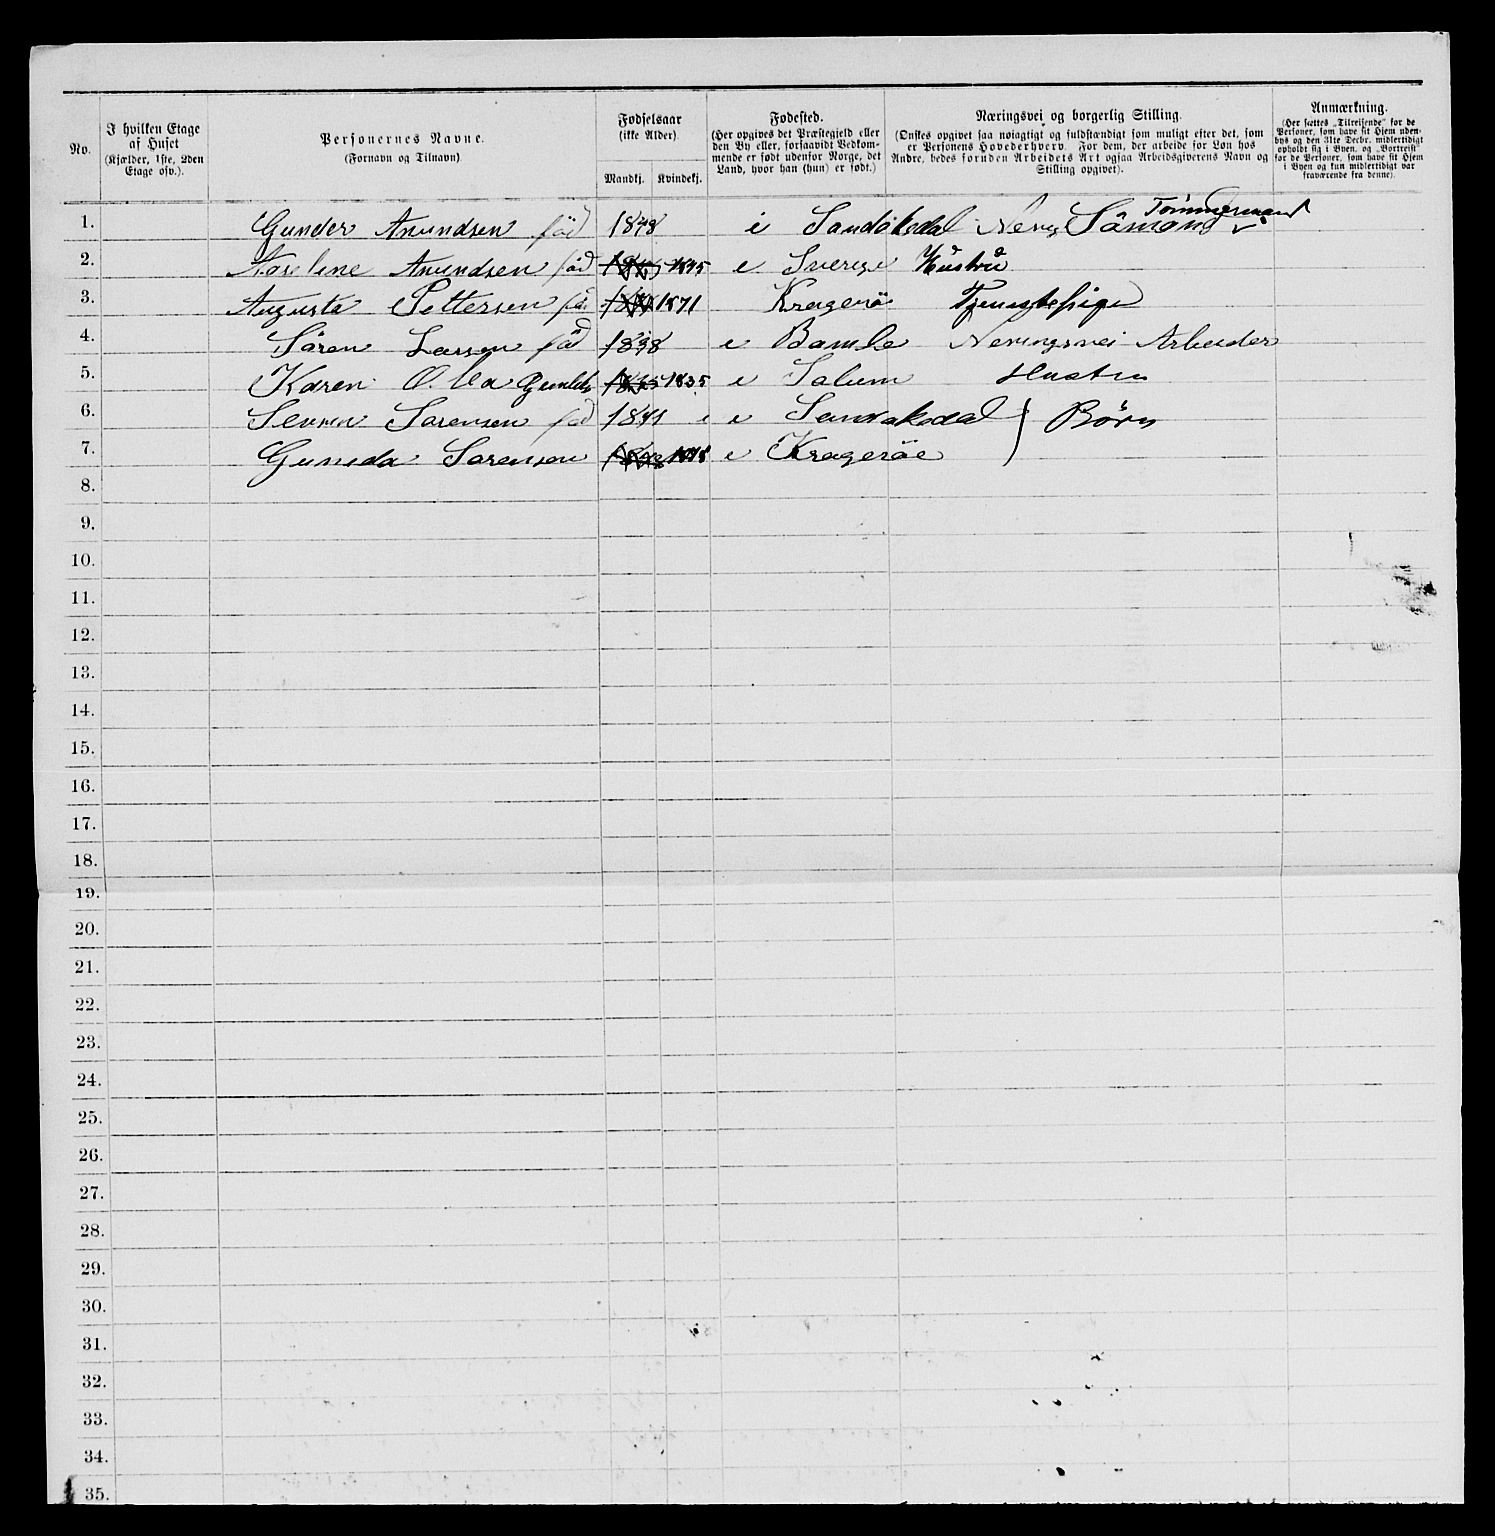 No.
I hvilken Etage
af Huset
(Kjælder, 1ste, 2den
Etage osv.).
Personernes Navne.
(Fornavn og Tilnavn)
Fødselsaar
(ikke Alder)
Mandkj. Kvindekj.
Fødested.
(Her opgives det Præstegjeld eller
den By eller, forsaavidt Vedkom-
mende er født udenfor Norge, det
Land, hvor han (hun) er født.)
Næringsvei og borgerlig Stilling.
(Ønskes opgivet saa nøiagtigt og fuldstændigt som muligt efter det, som
er Personens Hovederhverv. For dem, der arbeide for Løn hos
Andre, bedes foruden Arbeidets Art ogsaa Arbeidsgiverens Navn og
Stilling opgivet).
Anmærkning.
(Her sættes „Tilreisende" for de
Personer, som have sit Hjem uden-
bys og den 31te Decbr. midlertidigt
opholdt sig i Byen, og „Bortreist"
for de Personer, som have sit Hjem
i Byen og kun midlertidigt var
fraværende fra denne).
Tömmermand
1. Gunder Anundsen föd 1848 i Sandökedal Nerigs Sömand
2. Anundsen föd 1845 i Sverige Hustru
3. Augusta Pettersen fö 1871 Kragerö Tjenestepige
4. Sören Larsen föd 1838 i Bamle Neringsvei Arbeider
5. Karen O. lla 1835 i Solum Hustru
6. Sörensen föd i Sandökedal } Börn
7. Guneda Sorensen i Krageröe
8.
9.
10.
11.
12.
13.
14.
15.
16.
17.
18.
19.
20.
21.
22.
23.
24.
25.
26.
27.
28.
29.
30.
31.
32.
33.
34.
35.